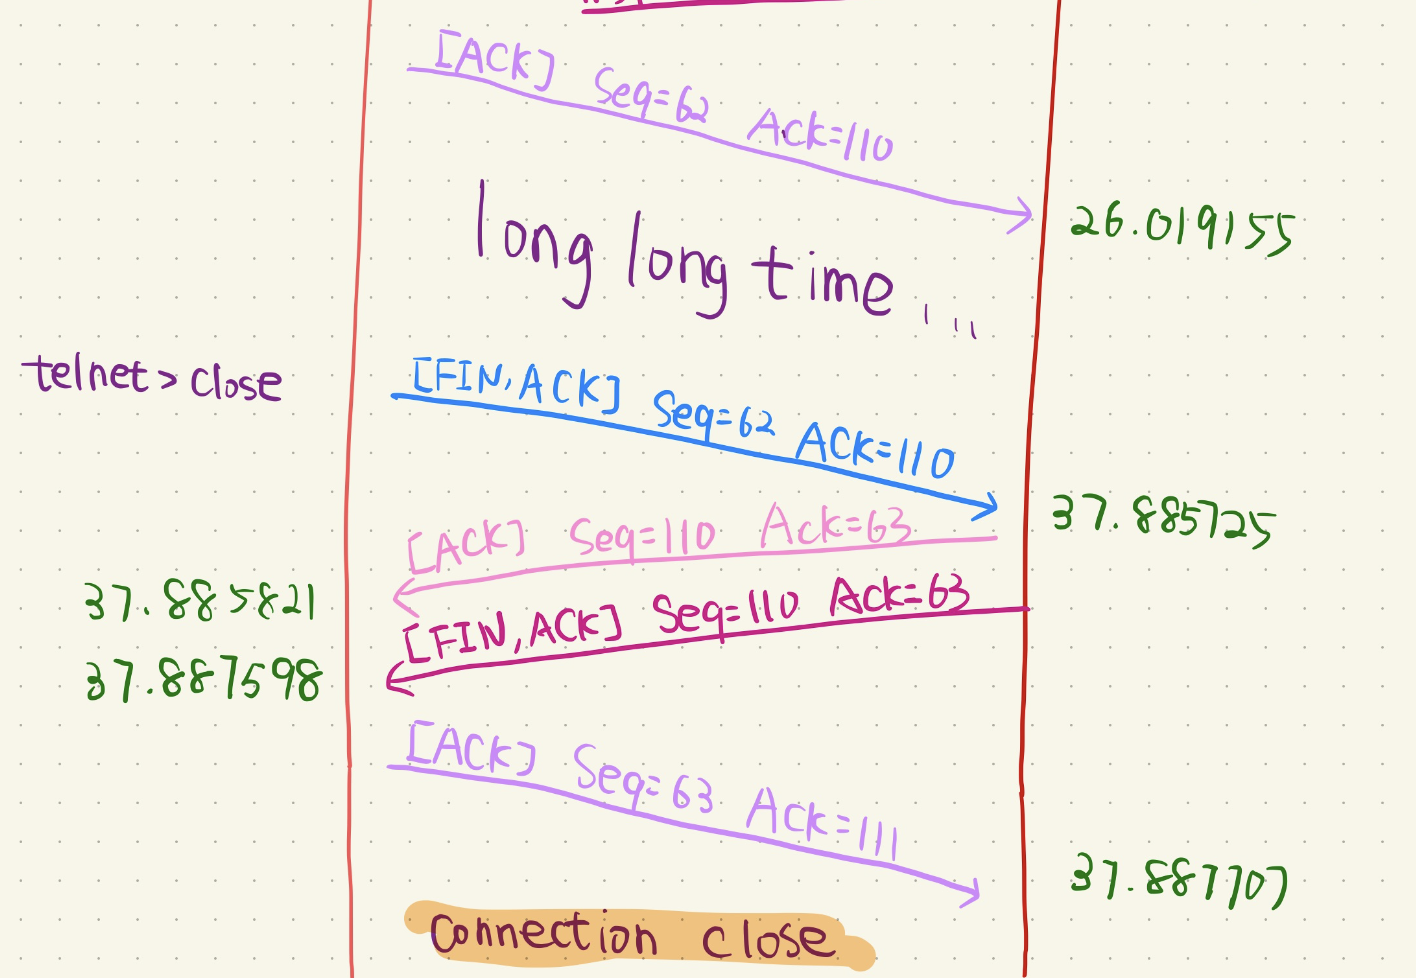 [ACK] Seq=62 Ack=110
26.019155
long long time...
telnet> close
[FIN, ACK] Seq=62 ACK=110
37.885725
[ACK] Seq=110 Ack=63
37.885821
[FIN, ACK] Seq=110 Ack=63
37.887598
[ACK] Seq=63 Ack=111
37.887707
Connection close